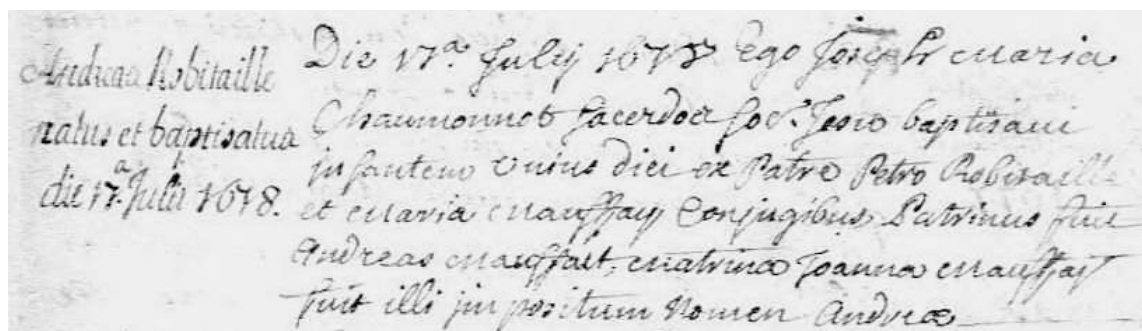 Andreas Robitaille
natus et baptisatus
die 17.a Julii 1678.
Die 17.a Julij 1678 Ego Joseph Maria
Chaumonnot Sacerdos Soc. Jesu baptisaui
jnfantem vnius diei ex Patre Petro Robitaille
et Maria Mauffay Conjugibus, Patrinus fuit
Andreas Mauffait, Matrina Joanna Mauffay
fuit illi jmpositum Nomen Andreæ